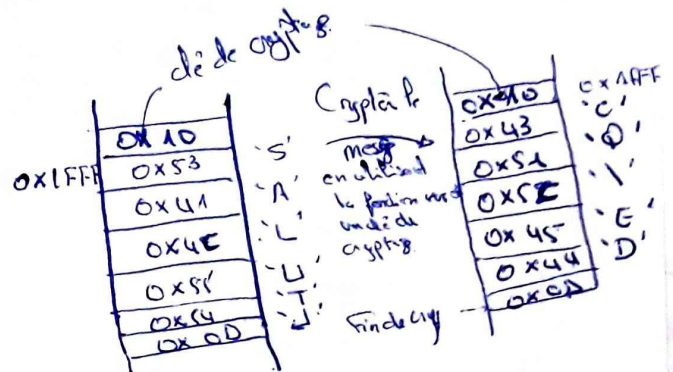 clé de cryptage
0x10
0x1FFF
0x53
'S'
0x41
'A'
0x4C
'L'
0x55
'U'
0x54
'T'
0x0D
Crypter le
en utilisant
la fonction
un clé de
cryptage
Fin de
0x10
0x1FFF
0x43
'C'
0x51
'Q'
0x5C
'\'
0x45
'E'
0x44
'D'
0x0D